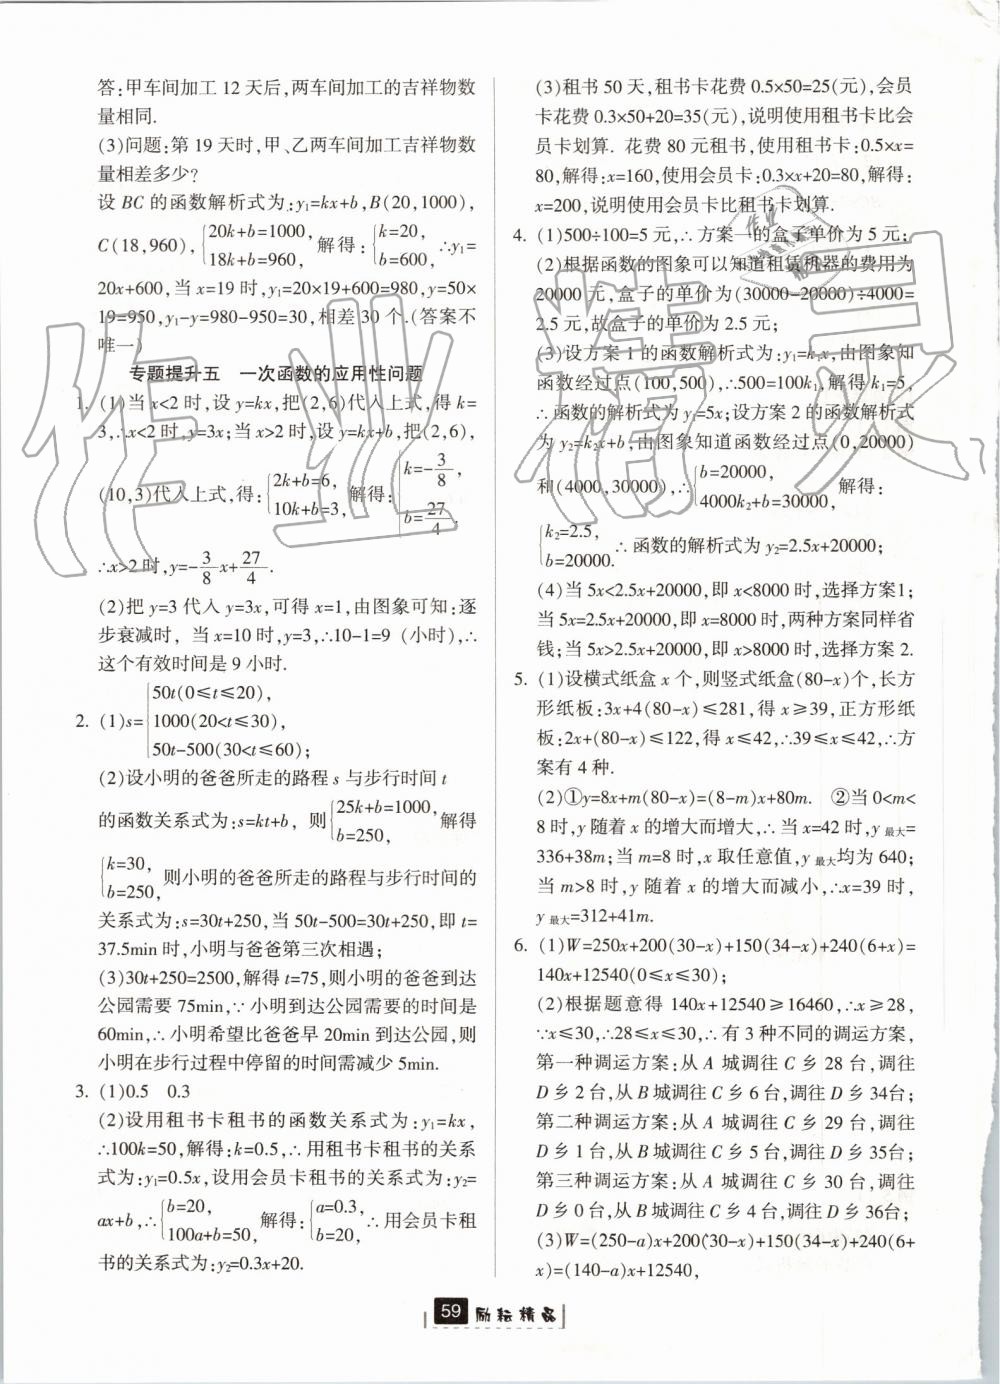 答:甲车间加工 12 天后,两车间加工的吉祥物数
量相同.
(3)问题:第 19 天时,甲、乙两车间加工吉祥物数
量相差多少?
设 BC 的函数解析式为:y₁=kx+b,B(20,1000),
C(18,960),{20k+b=1000, 18k+b=960, 解得:{k=20, b=600, ∴y₁=
20x+600,当 x=19 时,y₁=20×19+600=980,y=50×
19=950,y₁-y=980-950=30,相差 30 个.(答案不
唯一)
专题提升五 一次函数的应用性问题
1. (1)当 x<2 时,设 y=kx,把(2,6)代入上式,得 k=
3,∴x<2 时,y=3x;当 x>2 时,设 y=kx+b,把(2,6),
(10,3)代入上式,得:{2k+b=6, 10k+b=3, 解得:{k=-3/8, b=27/4.
∴x>2 时,y=-3/8x+27/4.
(2)把 y=3 代入 y=3x,可得 x=1,由图象可知:逐
步衰减时, 当 x=10 时,y=3,∴10-1=9 (小时),∴
这个有效时间是 9 小时.
2. (1)s={50t(0≤t≤20), 1000(20<t≤30), 50t-500(30<t≤60);
(2)设小明的爸爸所走的路程 s 与步行时间 t
的函数关系式为:s=kt+b, 则{25k+b=1000, b=250, 解得
{k=30, b=250, 则小明的爸爸所走的路程与步行时间的
关系式为:s=30t+250,当 50t-500=30t+250,即 t=
37.5min 时,小明与爸爸第三次相遇;
(3)30t+250=2500,解得 t=75,则小明的爸爸到达
公园需要 75min,∵小明到达公园需要的时间是
60min,∴小明希望比爸爸早 20min 到达公园,则
小明在步行过程中停留的时间需减少 5min.
3. (1)0.5 0.3
(2)设用租书卡租书的函数关系式为:y₁=kx,
∴100k=50,解得:k=0.5,∴用租书卡租书的关系
式为:y₁=0.5x,设用会员卡租书的关系式为:y₂=
ax+b,∴{b=20, 100a+b=50, 解得:{a=0.3, b=20, ∴用会员卡租
书的关系式为:y₂=0.3x+20.
(3)租书 50 天,租书卡花费 0.5×50=25(元),会员
卡花费 0.3×50+20=35(元),说明使用租书卡比会
员卡划算. 花费 80 元租书,使用租书卡:0.5×x=
80,解得:x=160,使用会员卡:0.3×x+20=80,解得:
x=200,说明使用会员卡比租书卡划算.
4. (1)500÷100=5 元,∴方案一的盒子单价为 5 元;
(2)根据函数的图象可以知道租赁机器的费用为
20000 元,盒子的单价为(30000-20000)÷4000=
2.5 元,故盒子的单价为 2.5 元;
(3)设方案 1 的函数解析式为:y₁=k₁x,由图象知
函数经过点(100,500),∴500=100k₁,解得 k₁=5,
∴函数的解析式为 y₁=5x;设方案 2 的函数解析式
为 y₂=k₂x+b,由图象知道函数经过点(0,20000)
和(4000,30000),∴{b=20000, 4000k₂+b=30000, 解得:
{k₂=2.5, b=20000. ∴函数的解析式为 y₂=2.5x+20000;
(4)当 5x<2.5x+20000,即 x<8000 时,选择方案1;
当 5x=2.5x+20000,即 x=8000 时,两种方案同样省
钱;当 5x>2.5x+20000,即 x>8000 时,选择方案 2.
5. (1)设横式纸盒 x 个,则竖式纸盒(80-x)个,长方
形纸板:3x+4(80-x)≤281,得 x≥39,正方形纸
板:2x+(80-x)≤122,得 x≤42,∴39≤x≤42,∴方
案有 4 种.
(2)①y=8x+m(80-x)=(8-m)x+80m. ②当 0<m<
8 时,y 随着 x 的增大而增大,∴当 x=42 时,y 最大=
336+38m;当 m=8 时,x 取任意值,y 最大均为 640;
当 m>8 时,y 随着 x 的增大而减小,∴x=39 时,
y 最大=312+41m.
6. (1)W=250x+200(30-x)+150(34-x)+240(6+x)=
140x+12540(0≤x≤30);
(2)根据题意得 140x+12540≥16460,∴x≥28,
∵x≤30,∴28≤x≤30,∴有 3 种不同的调运方案,
第一种调运方案:从 A 城调往 C 乡 28 台,调往
D 乡 2 台,从 B 城调往 C 乡 6 台,调往 D 乡 34台;
第二种调运方案:从 A 城调往 C 乡 29 台,调往
D 乡 1 台,从 B 城调往 C 乡 5 台,调往 D 乡 35台;
第三种调运方案:从 A 城调往 C 乡 30 台,调往
D 乡 0 台,从 B 城调往 C 乡 4 台,调往 D 乡 36台;
(3)W=(250-a)x+200(30-x)+150(34-x)+240(6+
x)=(140-a)x+12540,
59 励耘精品
作业精灵